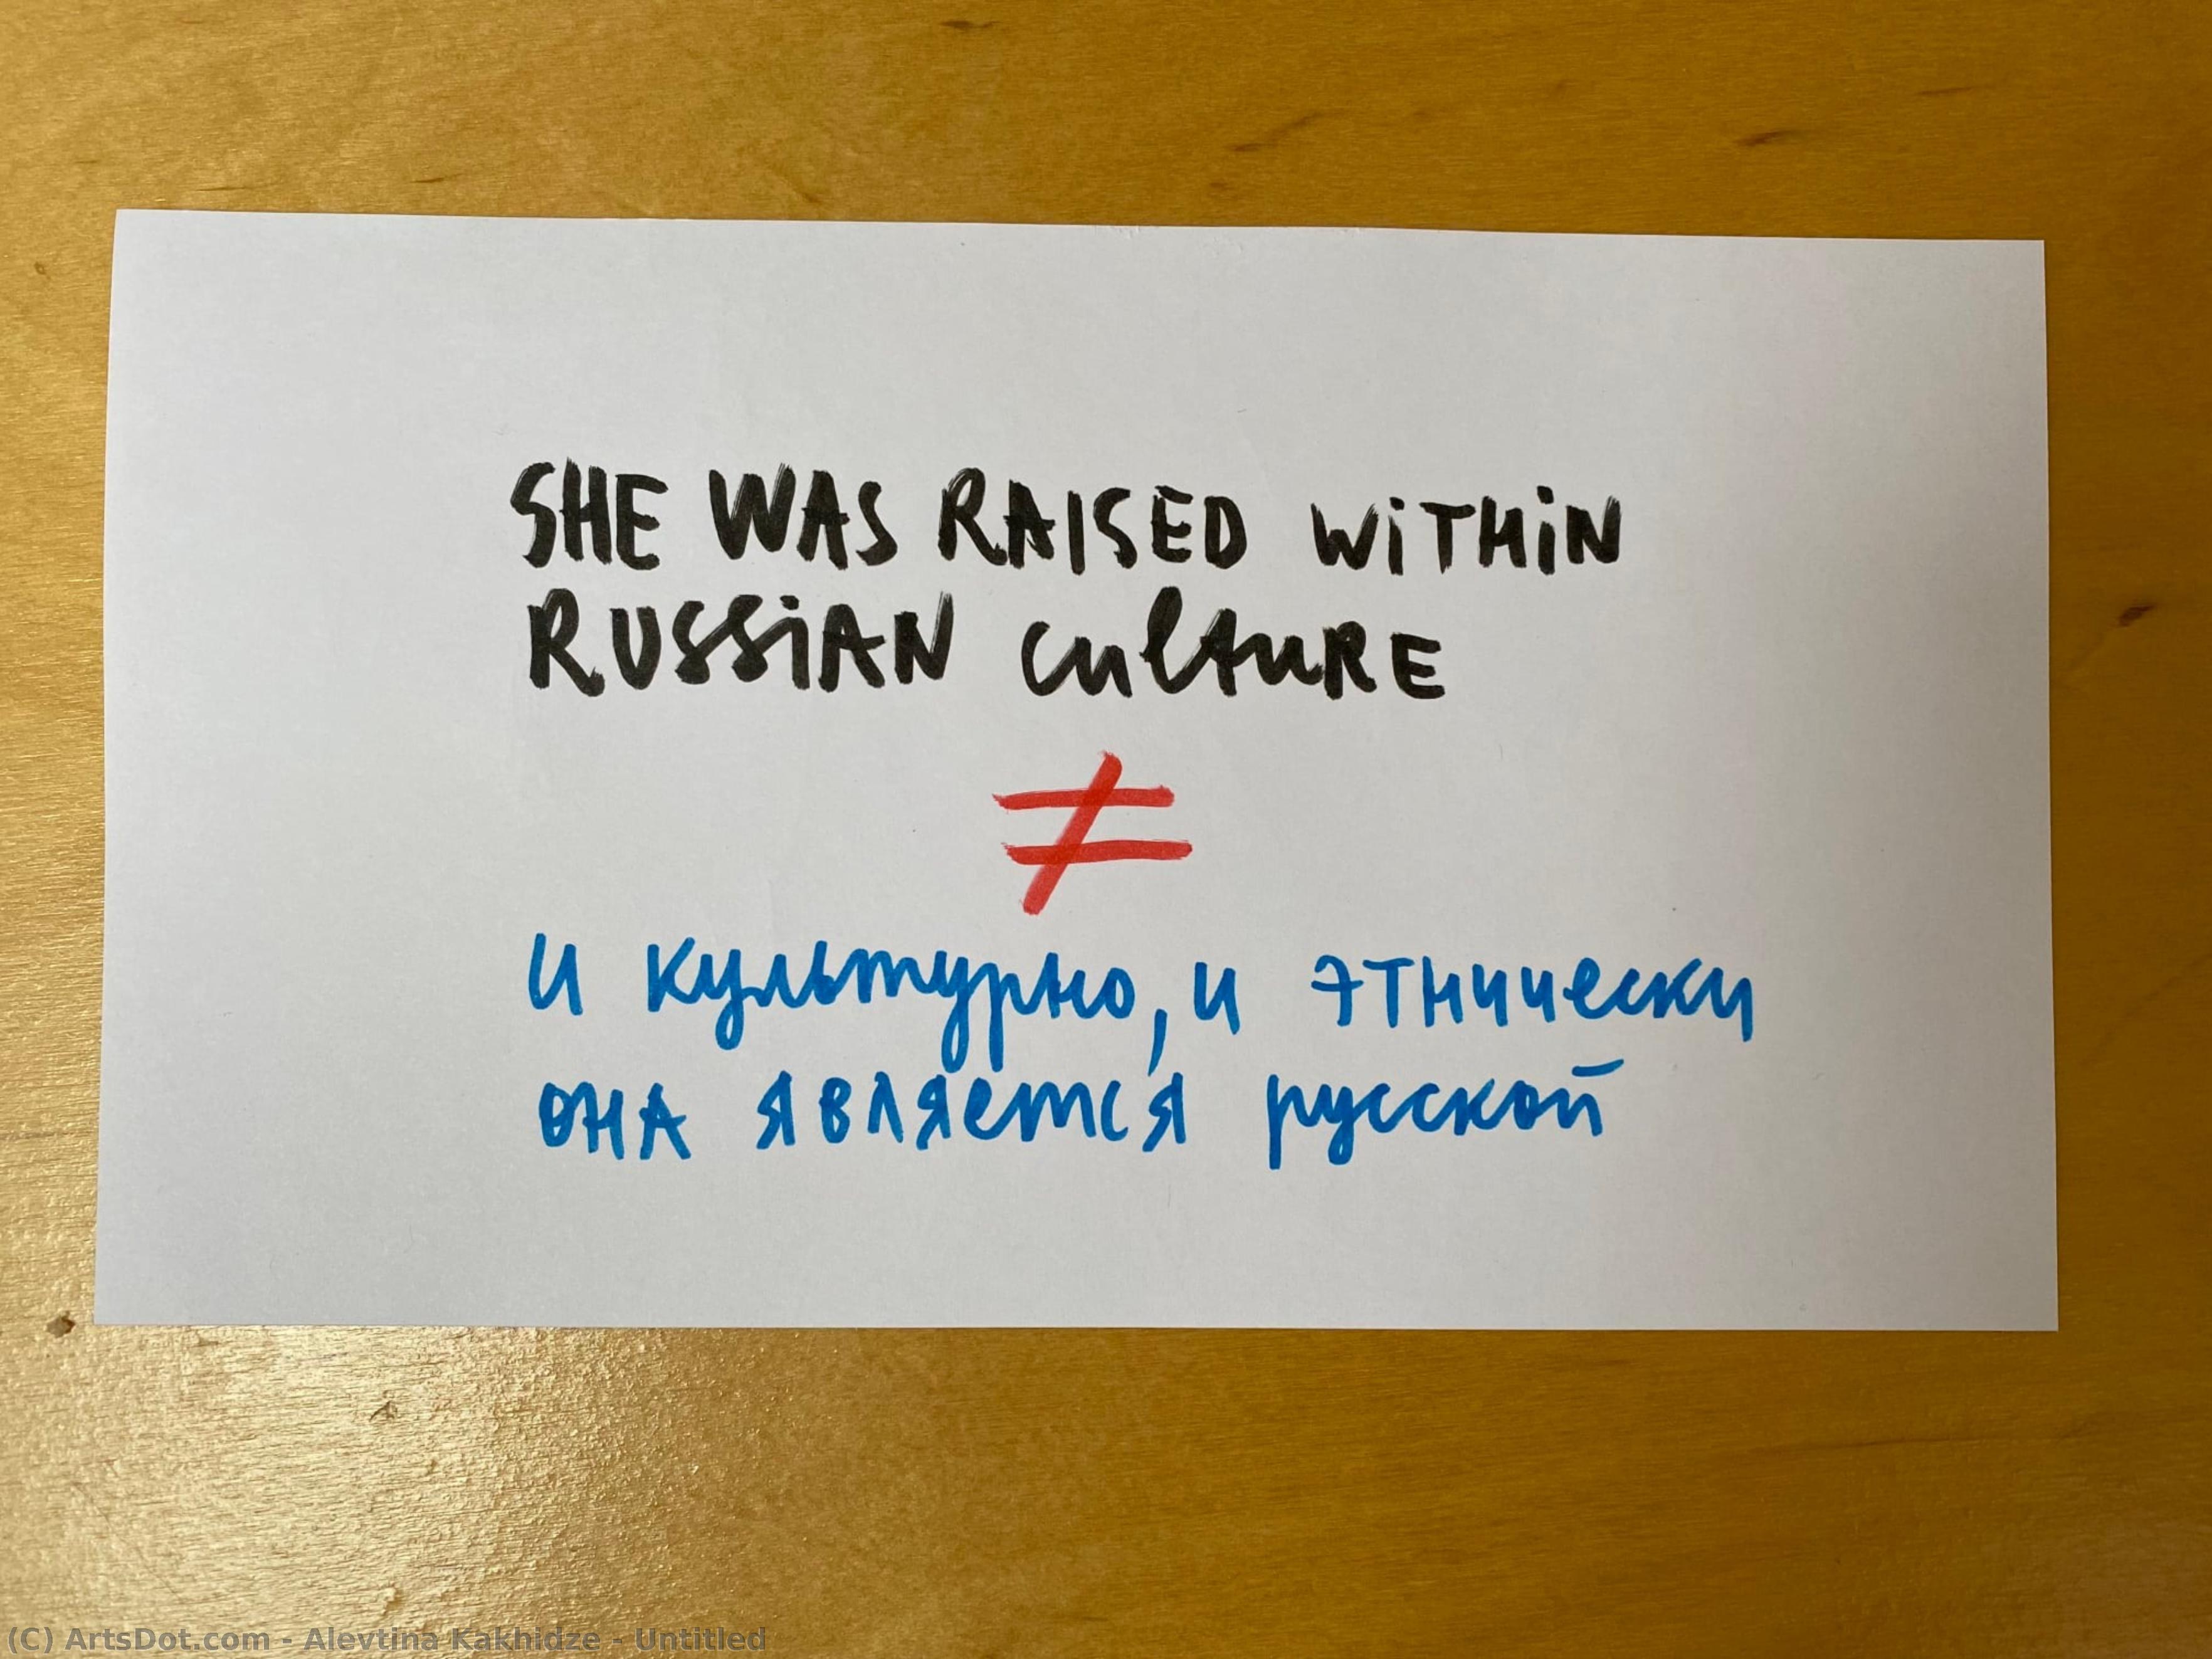 SHE WAS RAISED WiTHiN
RUSSiAN CulTuRE
≠
и культурно, и этнически
она является русской
(C) ArtsDot.com - Alevtina Kakhidze - Untitled